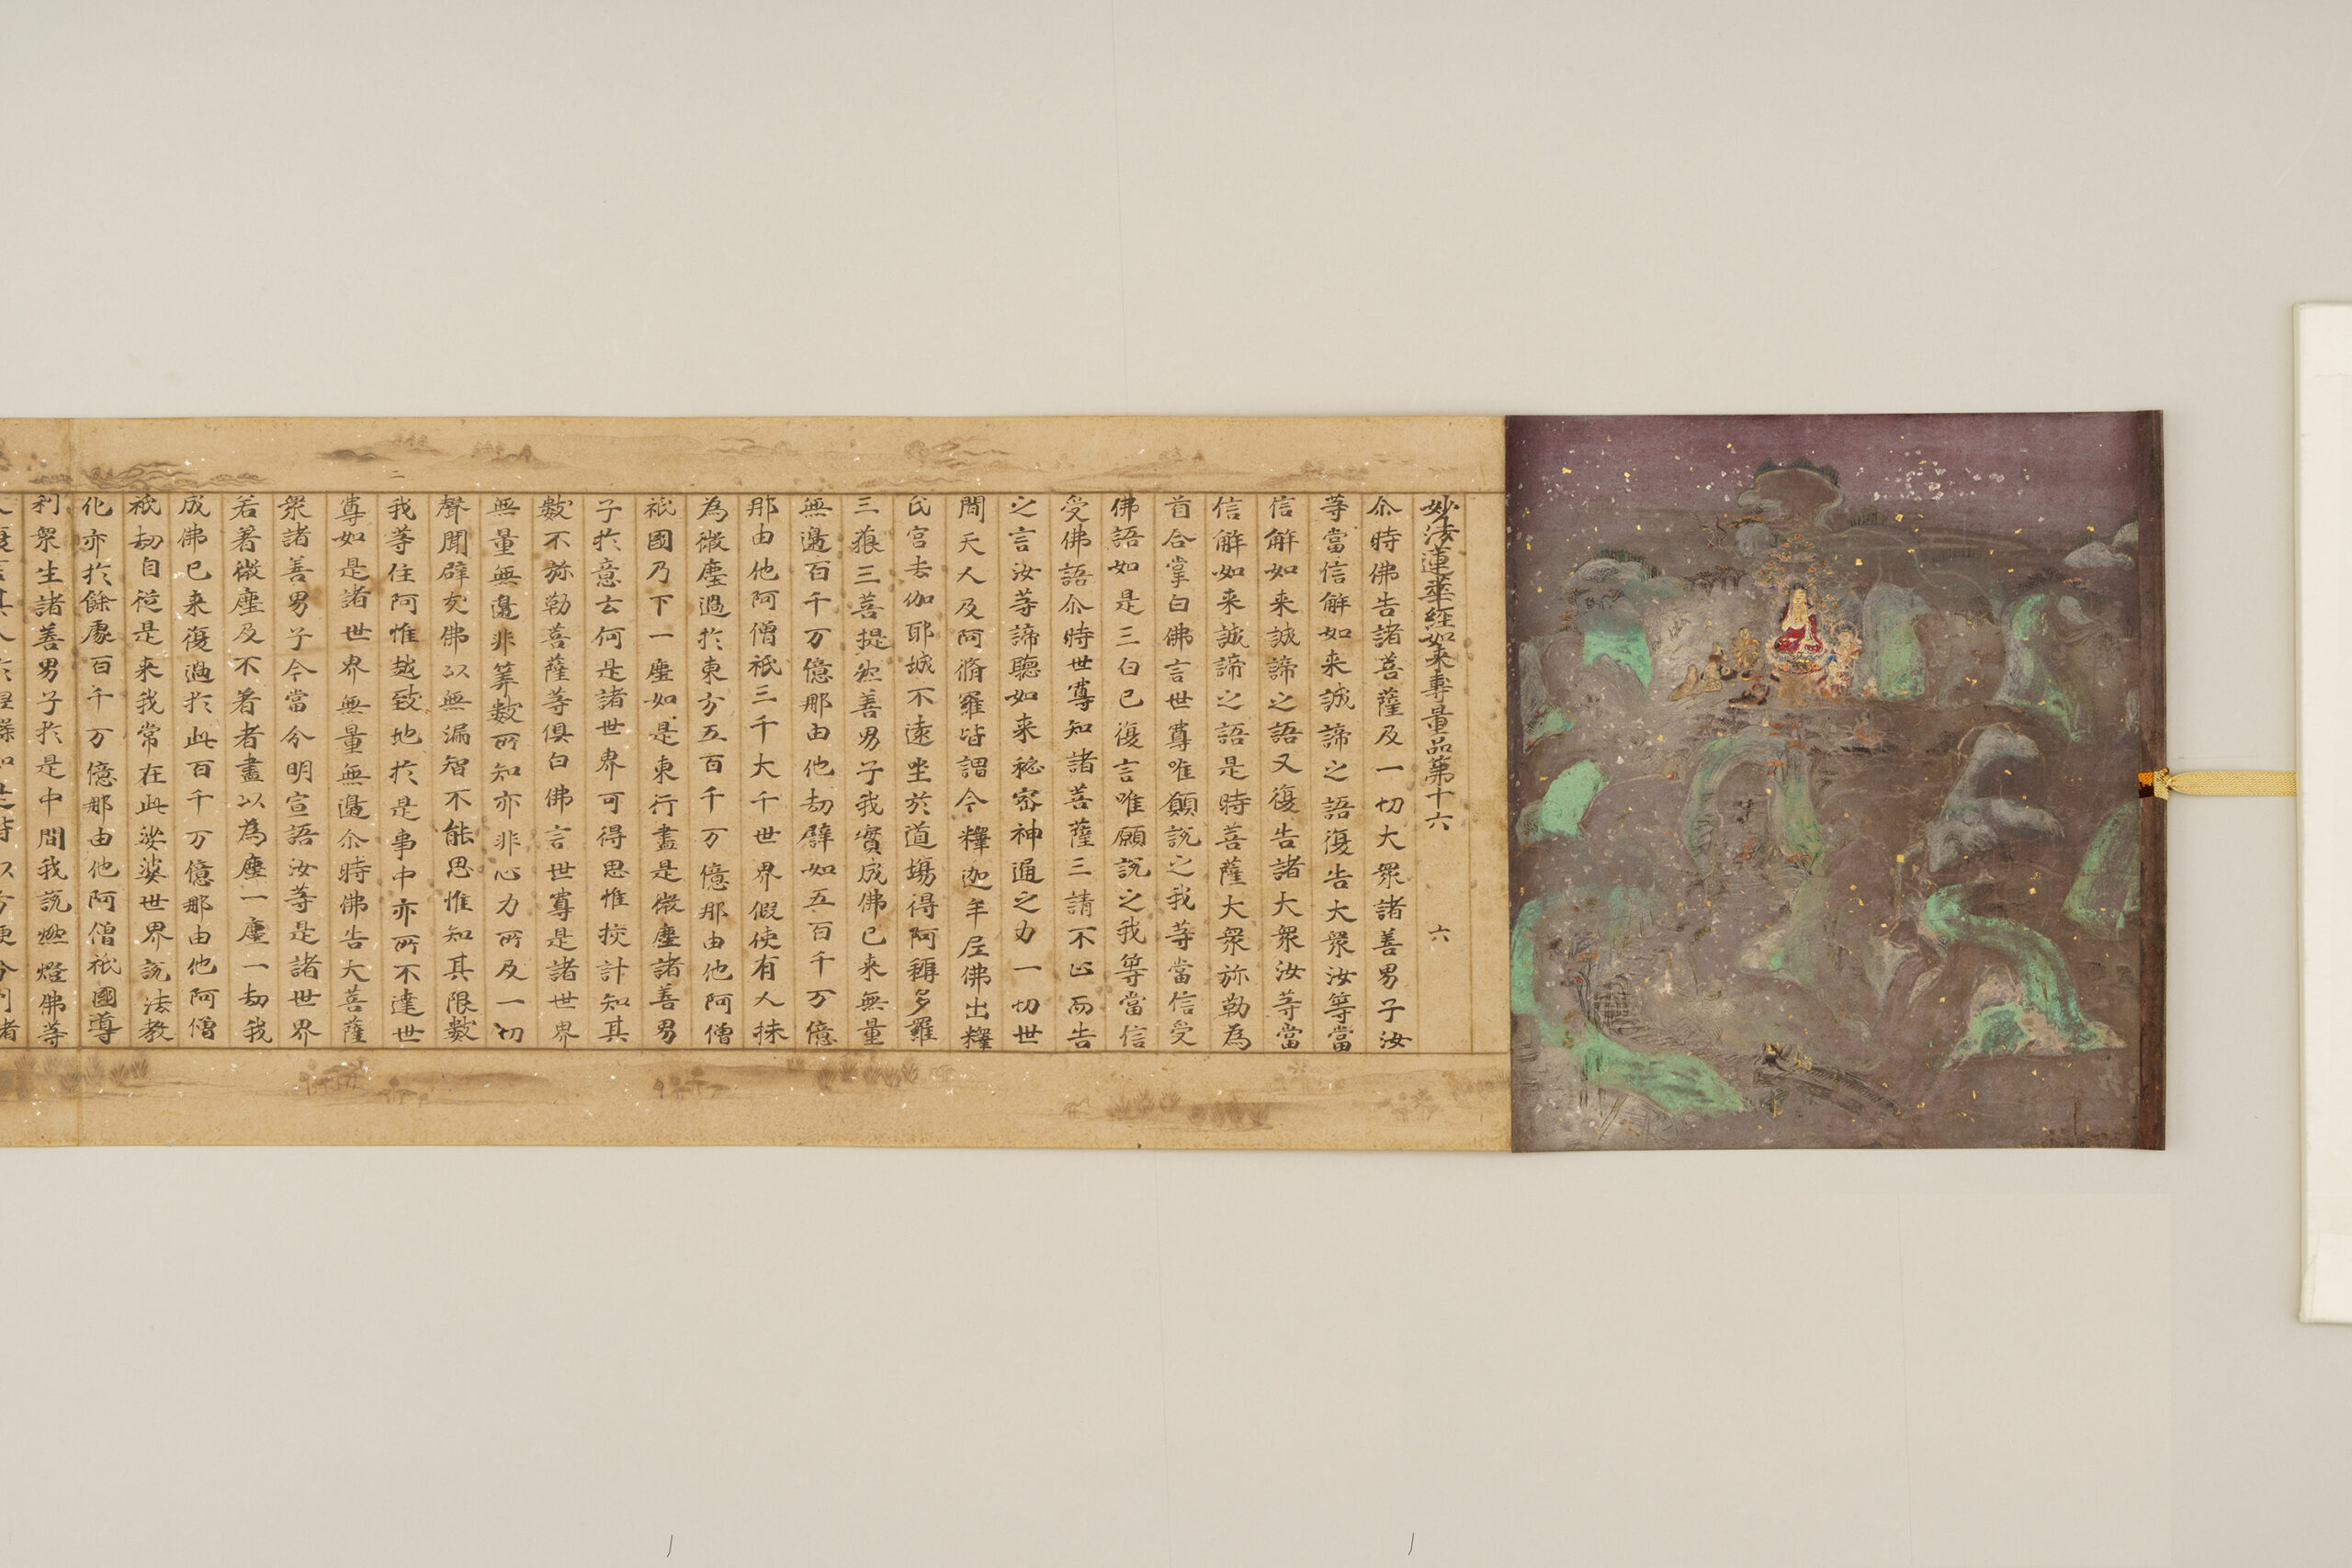 妙法蓮華経如来壽量品第十六 六
尒時佛告諸菩薩及一切大衆諸善男子汝
等當信解如来誠諦之語復告大衆汝等當
信解如来誠諦之語又復告諸大衆汝等當
信解如来誠諦之語是時菩薩大衆弥勒為
首合掌白佛言世尊唯願說之我等當信受
佛語如是三白已復言唯願說之我等當信
受佛語尒時世尊知諸菩薩三請不止而告
之言汝等諦聽如来秘密神通之力一切世
間天人及阿脩羅皆謂今釋迦牟尼佛出釋
氏宮去伽耶城不遠坐於道場得阿耨多羅
三藐三菩提然善男子我實成佛已来無量
無邊百千万億那由他劫譬如五百千万億
那由他阿僧祇三千大千世界假使有人抹
為微塵過於東方五百千万億那由他阿僧
祇國乃下一塵如是東行盡是微塵諸善男
子扵意云何是諸世界可得思惟挍計知其
數不弥勒菩薩等俱白佛言世尊是諸世界
無量無邊非筭數所知亦非心力所及一切
聲聞辟支佛以無漏智不能思惟知其限數
我等住阿惟越致地扵是事中亦所不達世
尊如是諸世界無量無邊尒時佛告大菩薩
衆諸善男子今當分明宣語汝等是諸世界
若著微塵及不著者盡以為塵一塵一劫我
成佛已来復過扵此百千万億那由他阿僧
祇劫自從是来我常在此娑婆世界說法教
化亦扵餘處百千万億那由他阿僧祇國導
利衆生諸善男子扵是中間我說燃燈佛等
二